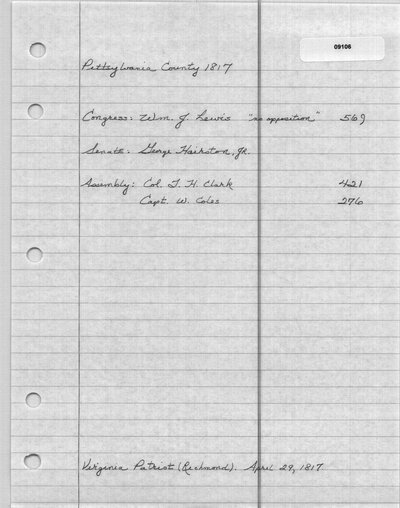 09106
Pittsylvania County 1817
Congress: Wm. J. Lewis "no opposition" 569
Senate: George Hairston, Jr.
Assembly: Col. T. H. Clark 421
Capt. W. Coles 276
Virginia Patriot (Richmond). April 29, 1817